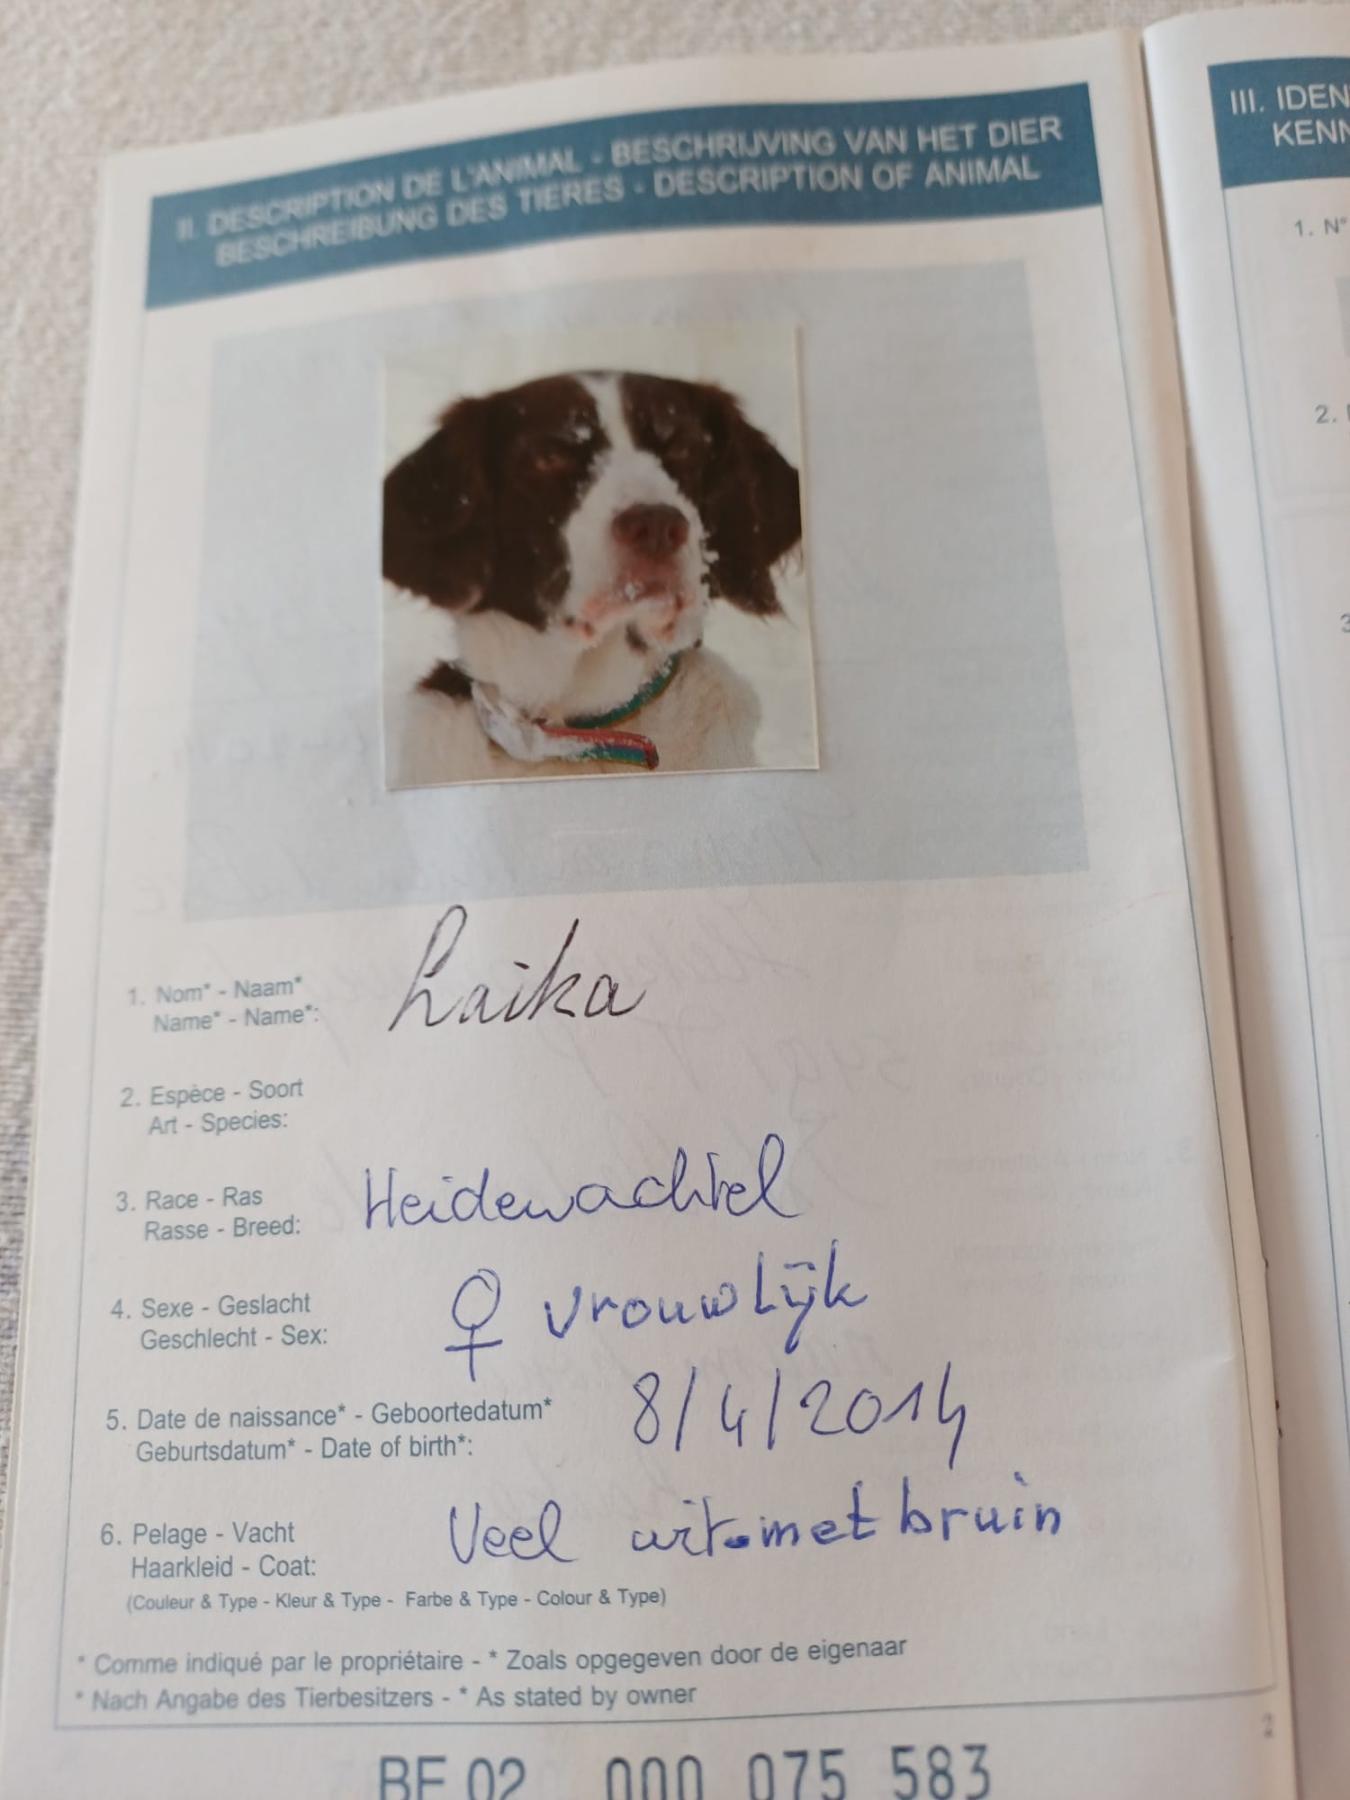 II. DESCRIPTION DE L'ANIMAL - BESCHRIJVING VAN HET DIER
BESCHREIBUNG DES TIERES - DESCRIPTION OF ANIMAL
1. Nom* - Naam*
Name* - Name*:
Laika
2. Espèce - Soort
Art - Species:
3. Race - Ras
Rasse - Breed:
Heidewachtel
4. Sexe - Geslacht
Geschlecht - Sex:
♀ vrouwlijk
5. Date de naissance* - Geboortedatum*
Geburtsdatum* - Date of birth*:
8/4/2014
6. Pelage - Vacht
Haarkleid - Coat:
Veel wit met bruin
(Couleur & Type - Kleur & Type - Farbe & Type - Colour & Type)
* Comme indiqué par le propriétaire - * Zoals opgegeven door de eigenaar
* Nach Angabe des Tierbesitzers - * As stated by owner
2
BE 02 000 075 583
III. IDEN
KENN
1. N°
2.
3